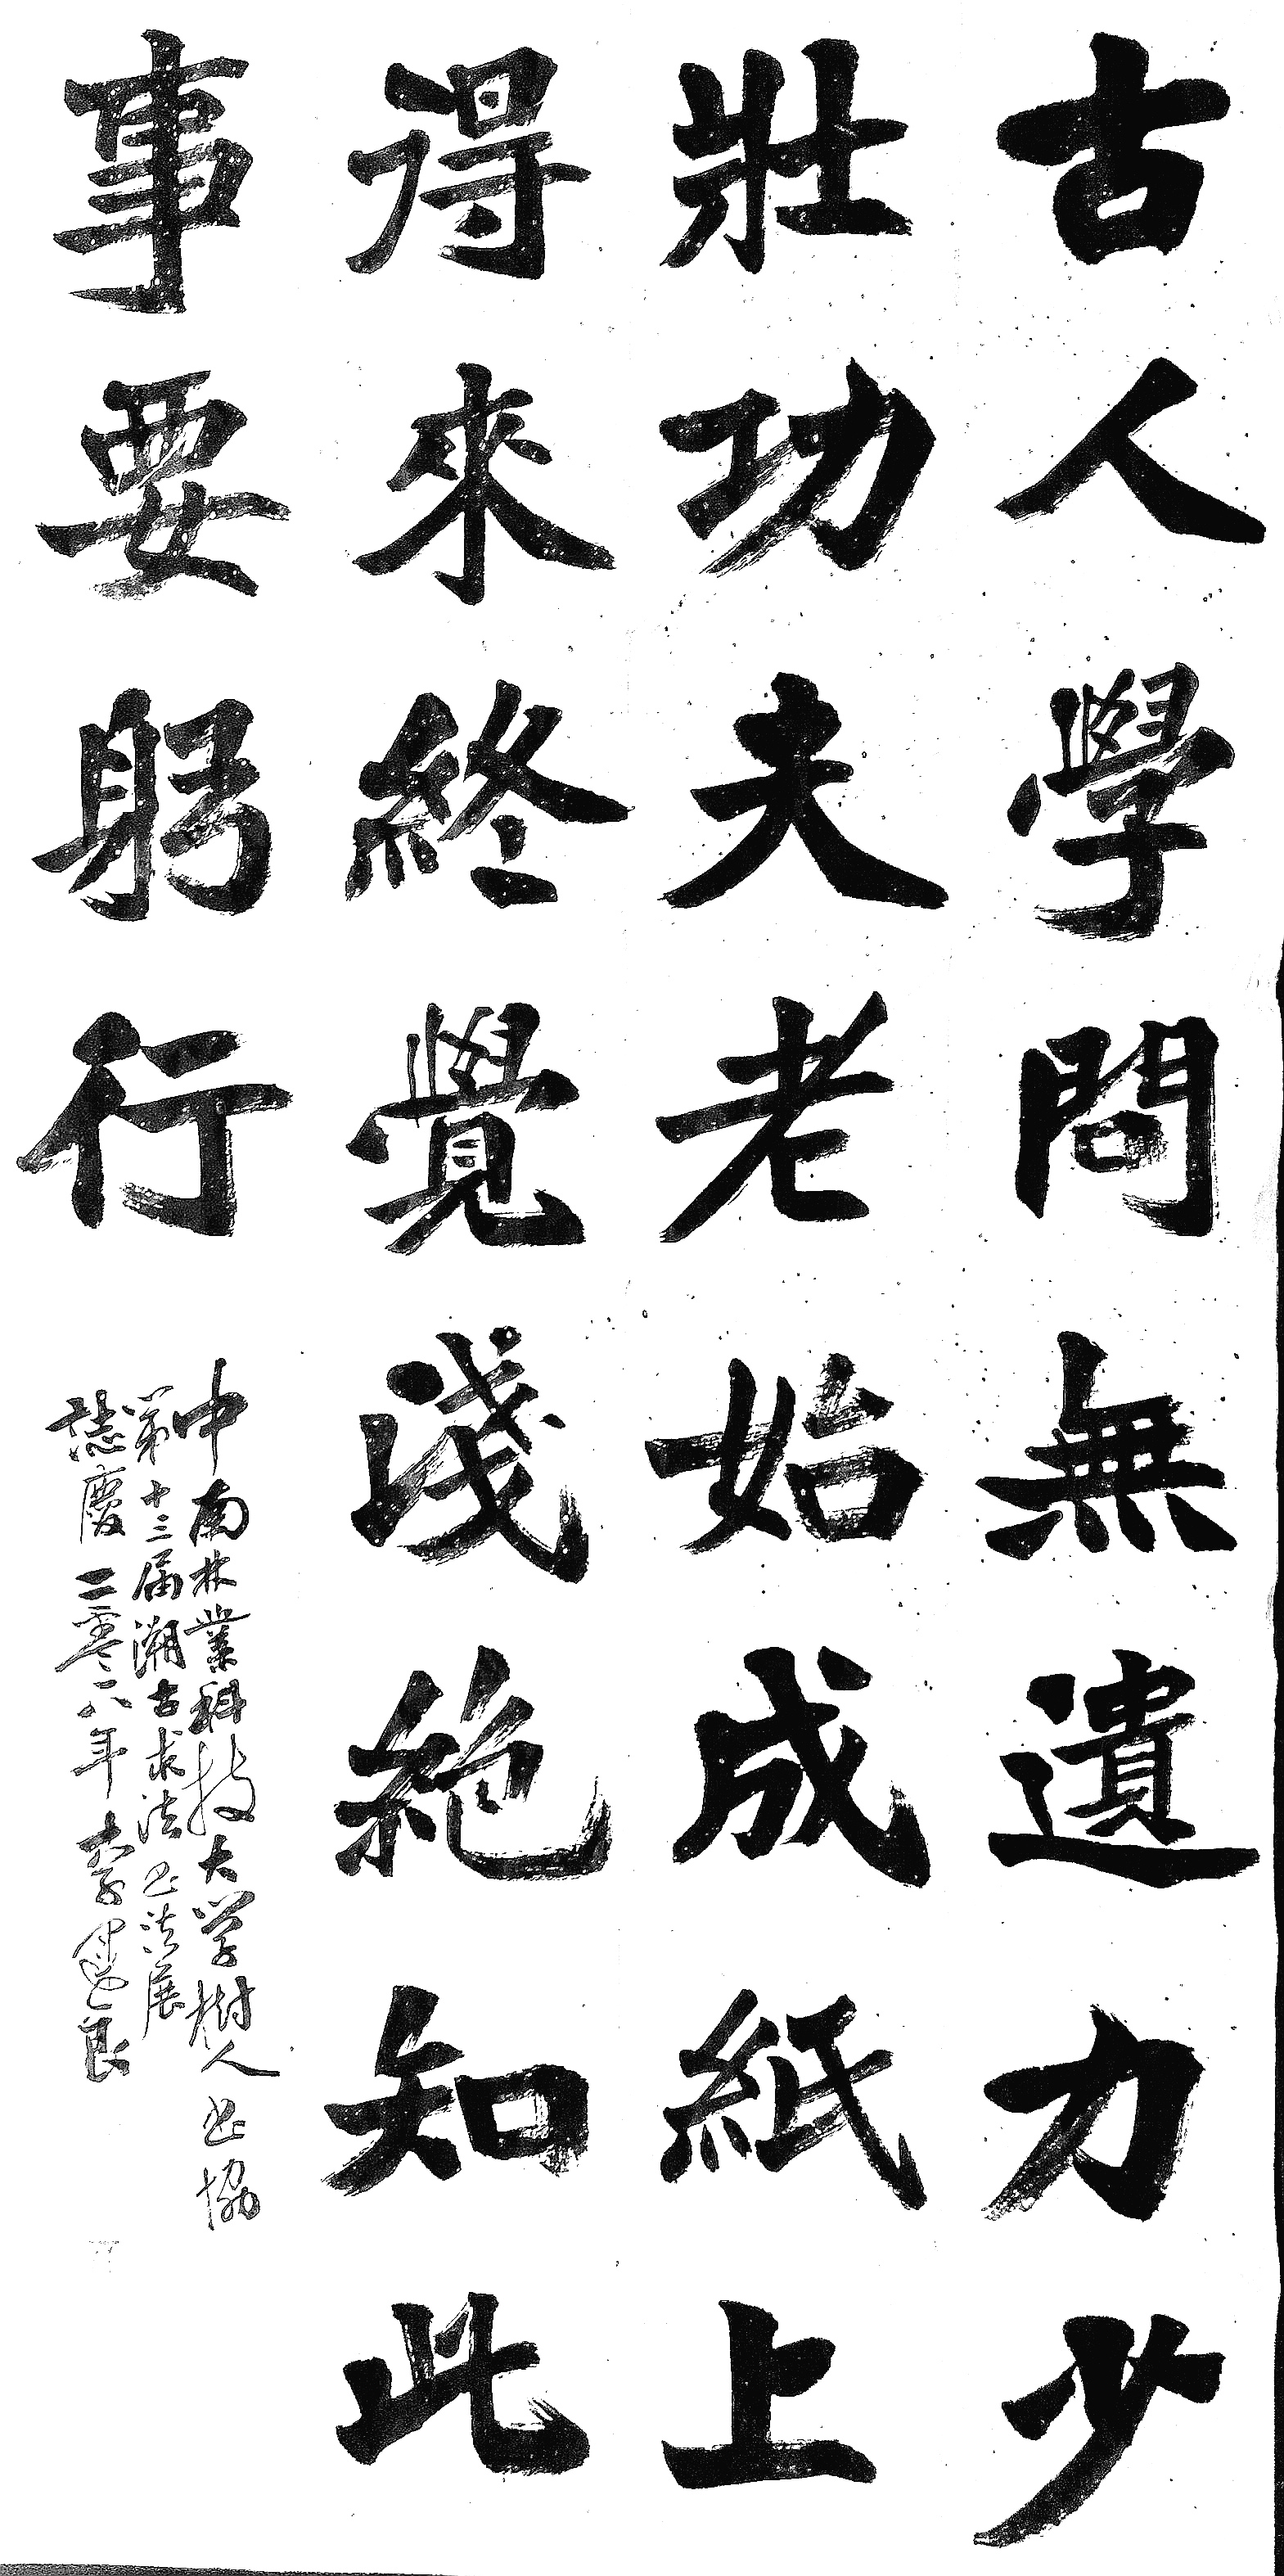 古人學問無遺力少
壯功夫老始成紙上
得來終覺淺絕知此
事要躬行
中南林業科技大学樹人书協
第十三届溯古求法书法展
誌慶 二零一八年 李建良